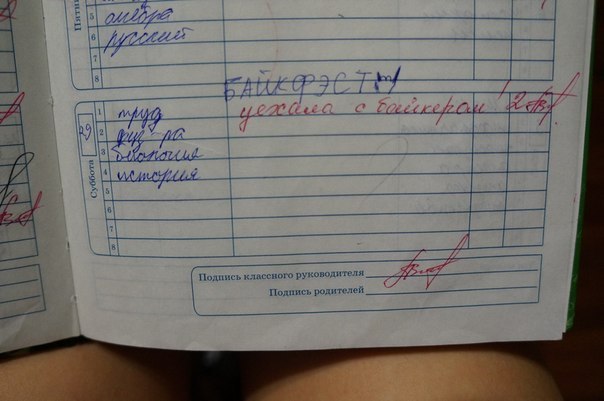 Пятни
5 алгебра
6 русский
7
8
БАЙКФЭСТ \m/
Суббота 29
1 труд уехала с байкером! 2
2 физ-ра
3 биология
4 история
5
6
7
8
Подпись классного руководителя
Подпись родителей